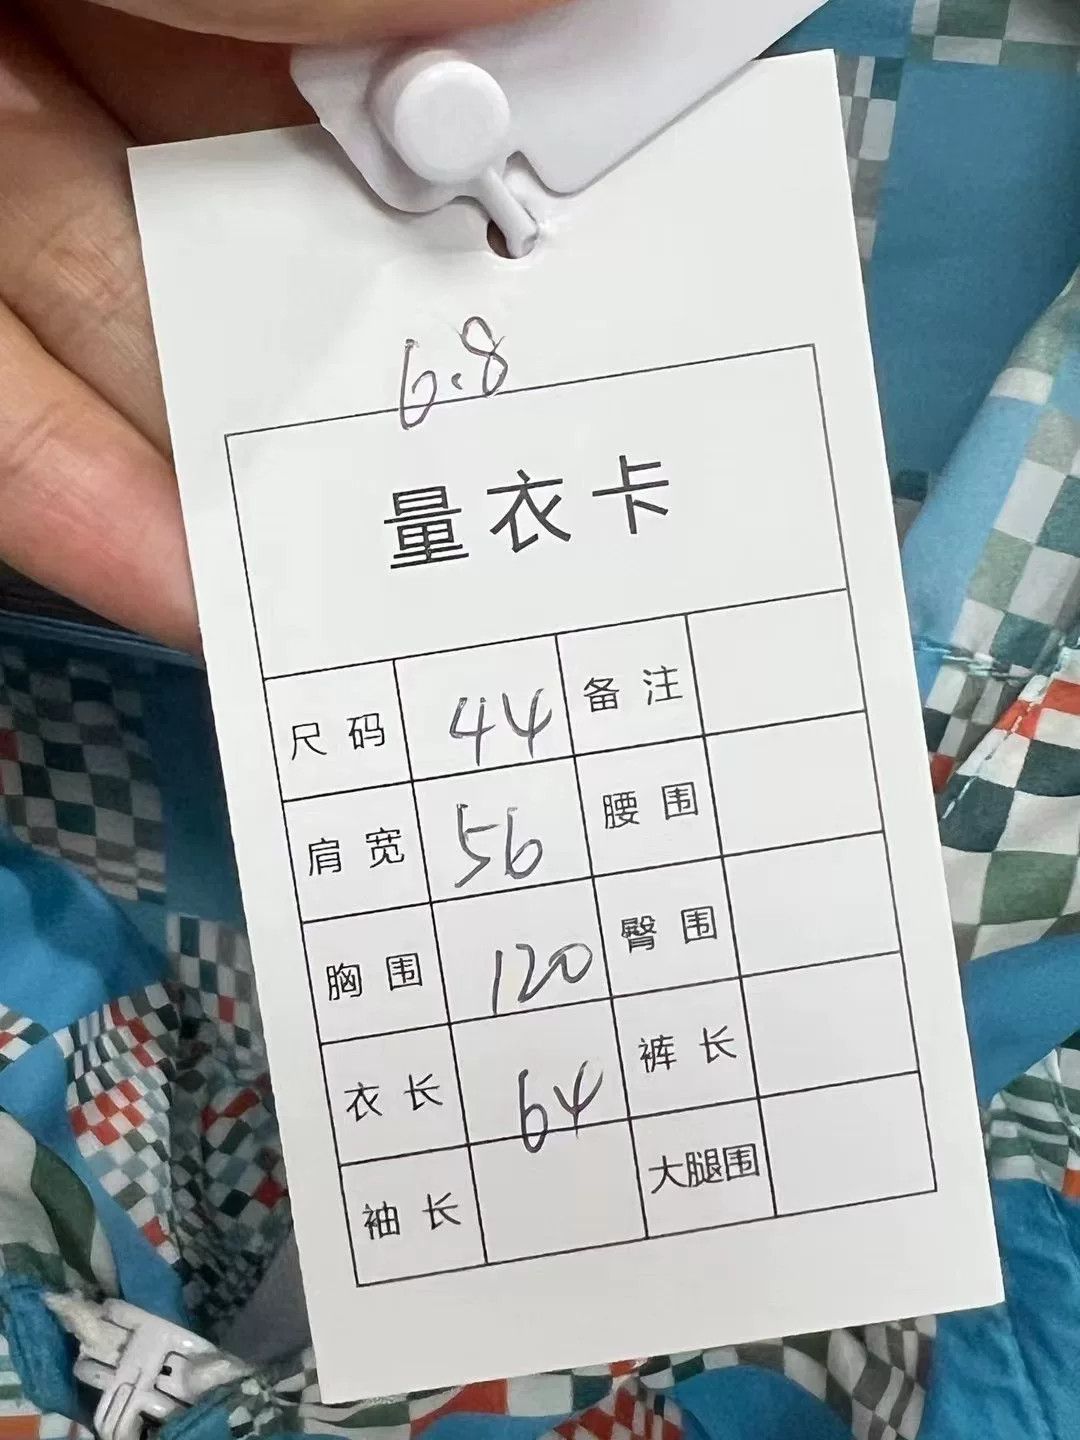 6.8
量衣卡
尺码 44 备注
肩宽 56 腰围
胸围 120 臀围
衣长 64 裤长
袖长 大腿围